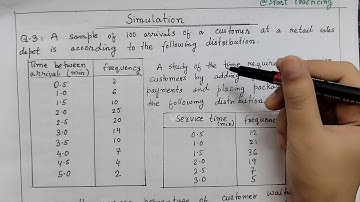 @Start Practicing
Simulation
Q-3: A sample of 100 arrivals of a customer at a retail sales
depot is according to the following distribution.
Time between arrival (min) frequency
0.5 2
1.0 6
1.5 10
2.0 25
2.5 20
3.0 14
3.5 10
4.0 7
4.5 4
5.0 2
A study of the time
customers by adding
payments and placing
the following distribution
Service time (min) frequency
0.5 12
1.0 21
1.5 36
2.0 19
2.5 7
3.0 5
percentage of customer